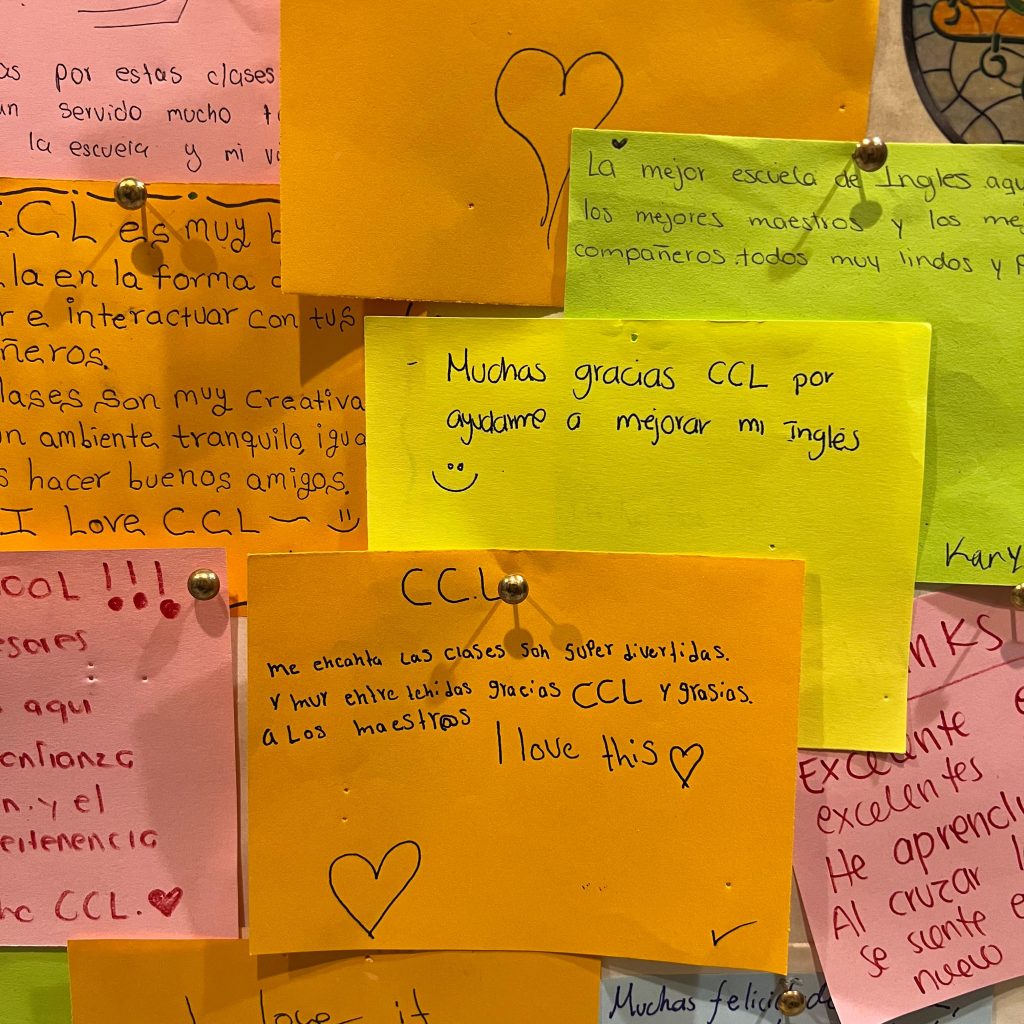 por estas clases
servido mucho
la escuela y mi
La mejor escuela de Ingles
los mejores maestros y los
compañeros. todos muy lindos y
Kary
CCL es muy
la en la forma
r e interactuar con tus
ñeros.
lases son muy creativa
un ambiente tranquilo, igua
s hacer buenos amigos.
I Love CCL
- Muchas gracias CCL por
ayudarme a mejorar mi Inglés
COOL !!!
esores
aqui
confianza
n. y el
ertenencia
CCL.
CCL
me encanta Las clases son super divertidas.
Y muy entretenidas gracias CCL y grasias.
a Los maestr@s
I love this
NKS
Excelente
excelentes
He aprendi
Al cruzar
se siente
nuevo
I love it
Muchas